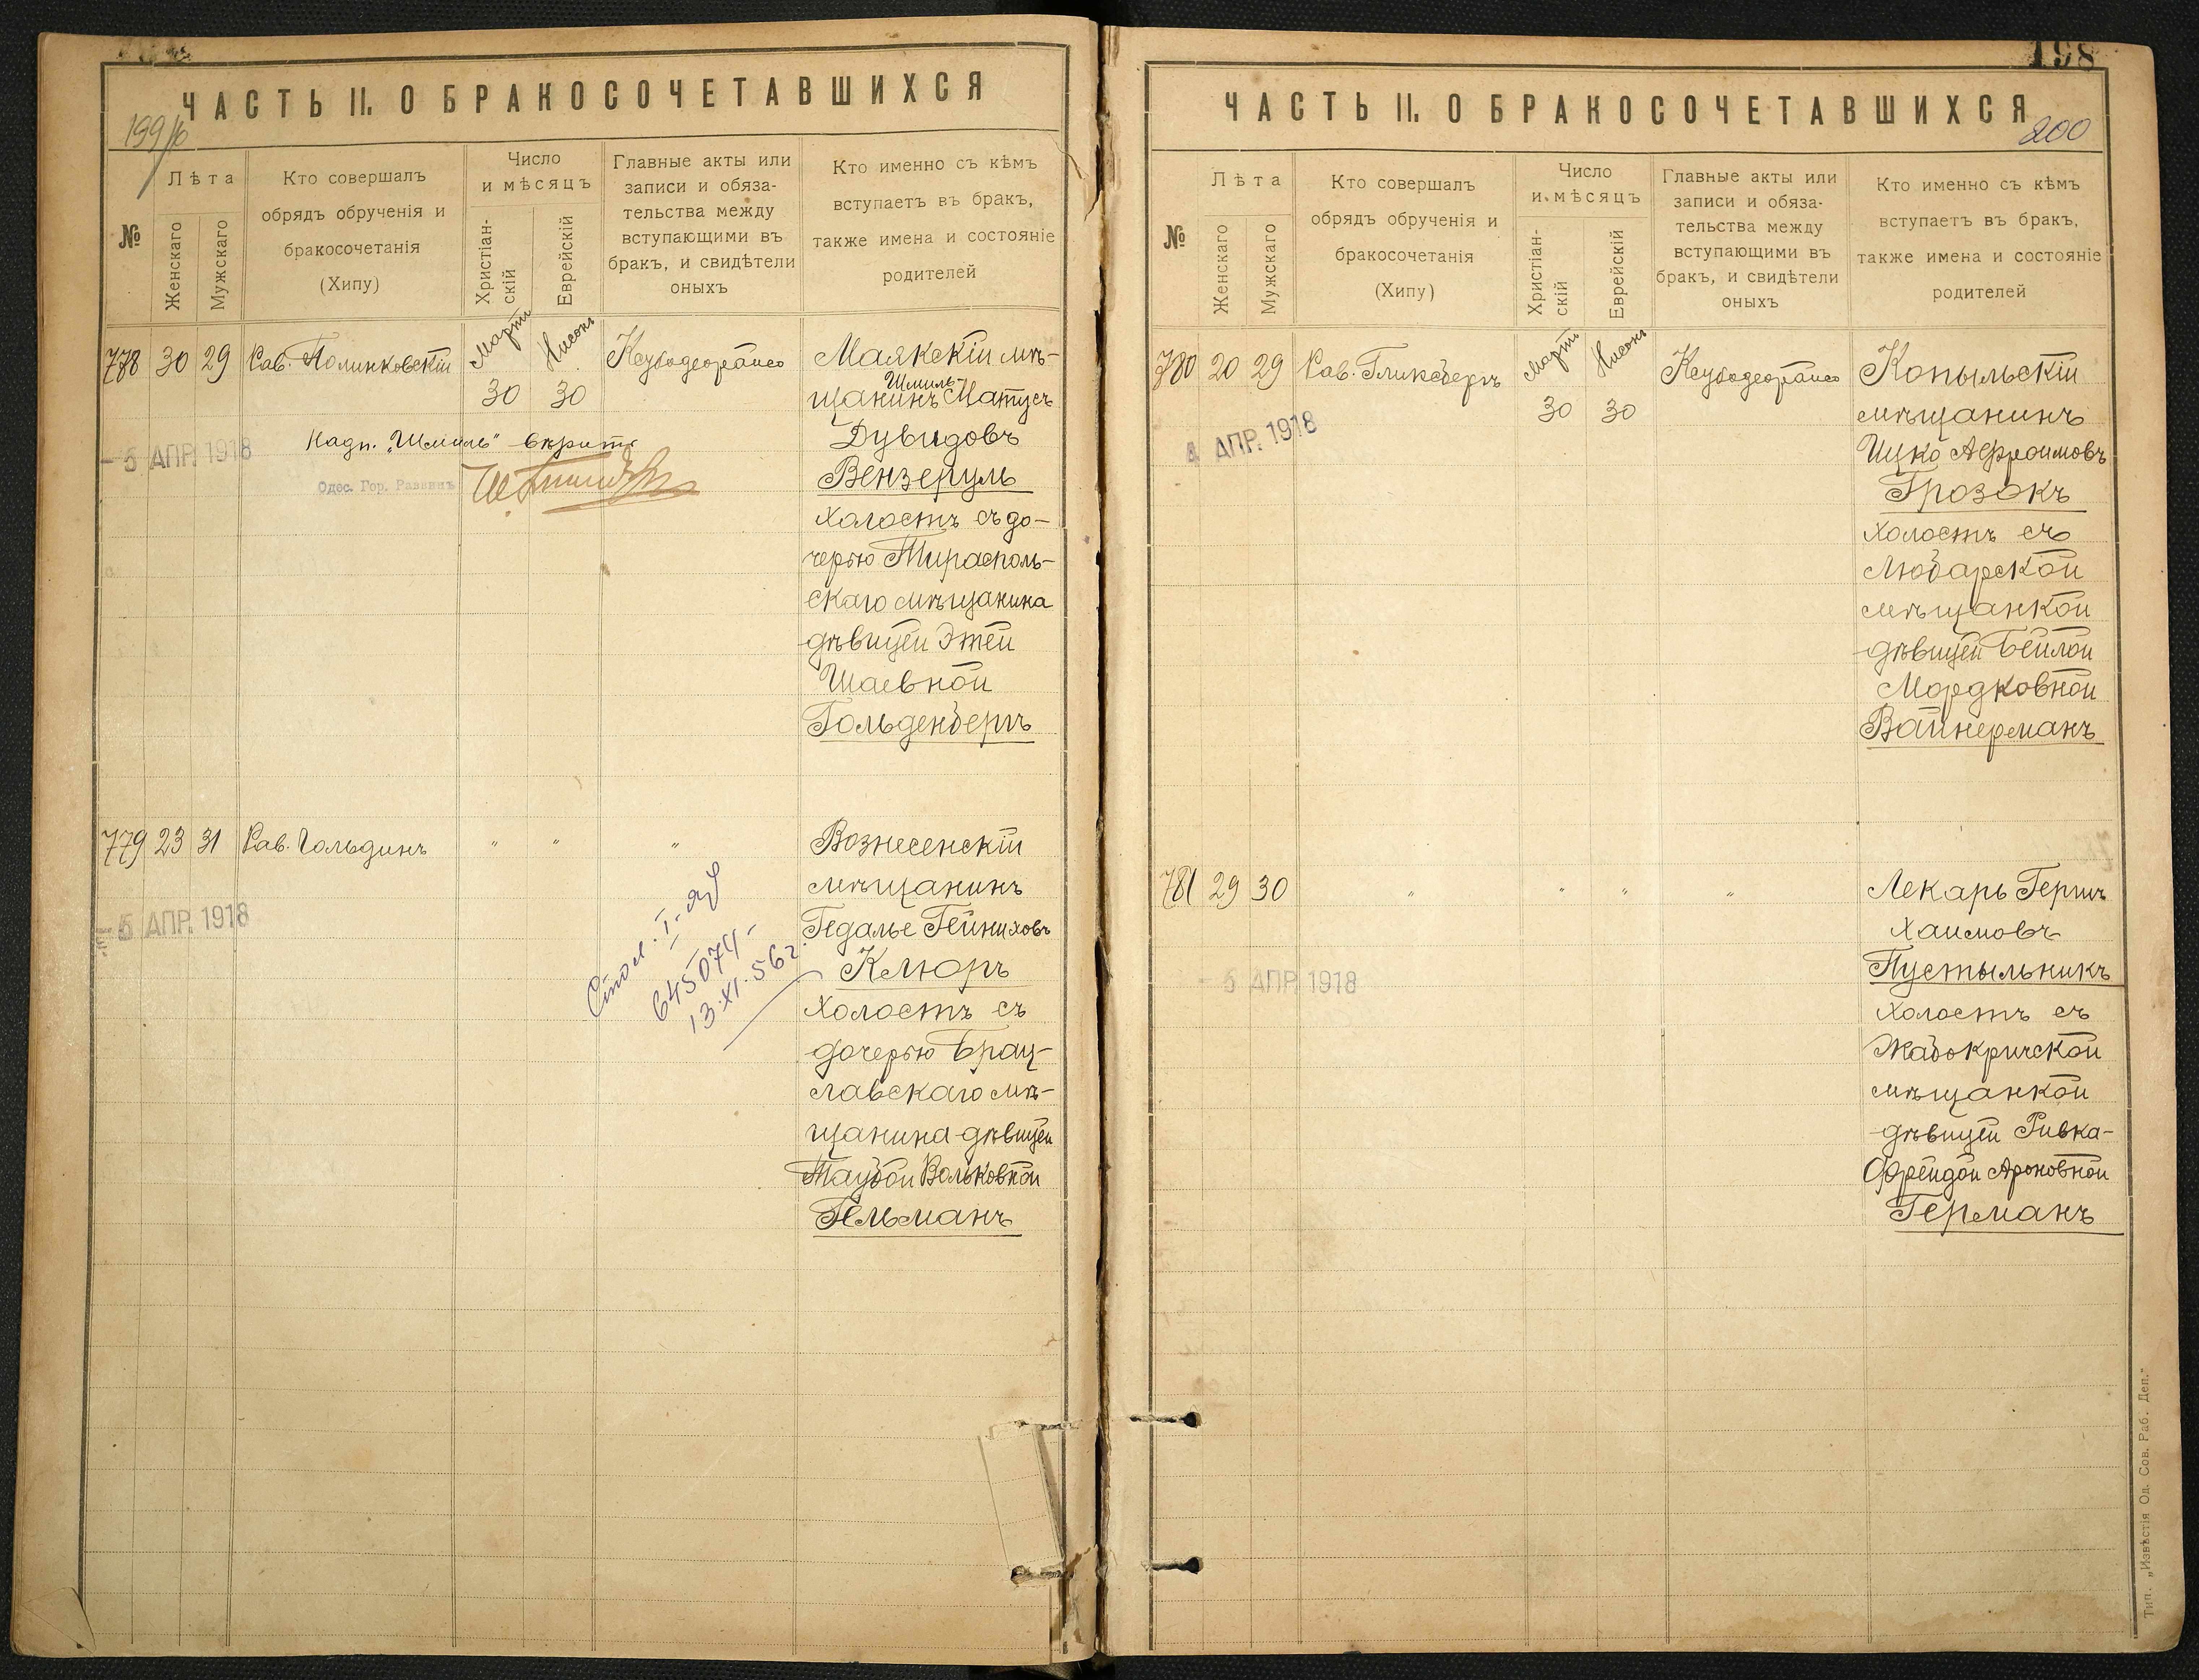 ЧАСТЬ II. О БРАКОСОЧЕТАВШИХСЯ
№
Лѣта
Женскаго
Мужскаго
Кто совершалъ
обрядъ обрученія и
бракосочетанія
(Хипу)
Число
и мѣсяцъ
Христіан-
скій
Еврейскій
Главные акты или
записи и обяза-
тельства между
вступающими въ
бракъ, и свидѣтели
оныхъ
Кто именно съ кѣмъ
вступаетъ въ бракъ,
также имена и состояніе
родителей
778 30 29 Рав. Полинковскій
Мартъ
30
Нисонъ
30
Маякскій мѣ-
Шмиль
щанинъ Матусъ
Дувидовъ
Вензеруль
холостъ съ до-
черью Тирасполь-
скаго мѣщанина
дѣвицей Этей
Шаевной
Гольденбергъ
- 5 АПР. 1918
надп. "Шмиль"
Одес. Гор. Раввинъ
779 23 31 Рав. Гольдинъ " " "
Вознесенскій
мѣщанинъ
Гедалье Гейниховъ
Клюръ
холостъ съ
дочерью Брац-
лавскаго мѣ-
щанина дѣвицей
Таубой Вольковной
Гельманъ
- 5 АПР. 1918
645074-
13.XI.56г.
198
ЧАСТЬ II. О БРАКОСОЧЕТАВШИХСЯ
200
№
Лѣта
Женскаго
Мужскаго
Кто совершалъ
обрядъ обрученія и
бракосочетанія
(Хипу)
Число
и мѣсяцъ
Христіан-
скій
Еврейскій
Главные акты или
записи и обяза-
тельства между
вступающими въ
бракъ, и свидѣтели
оныхъ
Кто именно съ кѣмъ
вступаетъ въ бракъ,
также имена и состояніе
родителей
780 20 29 Рав. Гликсбергъ
Мартъ
30
Нисонъ
30
Копыльскій
мѣщанинъ
Ицко Афроимовъ
Грозокъ
холостъ съ
Любарской
мѣщанкой
дѣвицей Бейлой
Мордковной
Вайнерманъ
4 АПР. 1918
781 29 30 " " " "
Лекарь Гершъ
Хаимовъ
Пустыльникъ
холостъ съ
Жабокричской
мѣщанкой
дѣвицей Ривка-
Фрейдой Ароновной
Германъ
- 5 АПР. 1918
Тип. „Извѣстія Од. Сов. Раб. Деп."